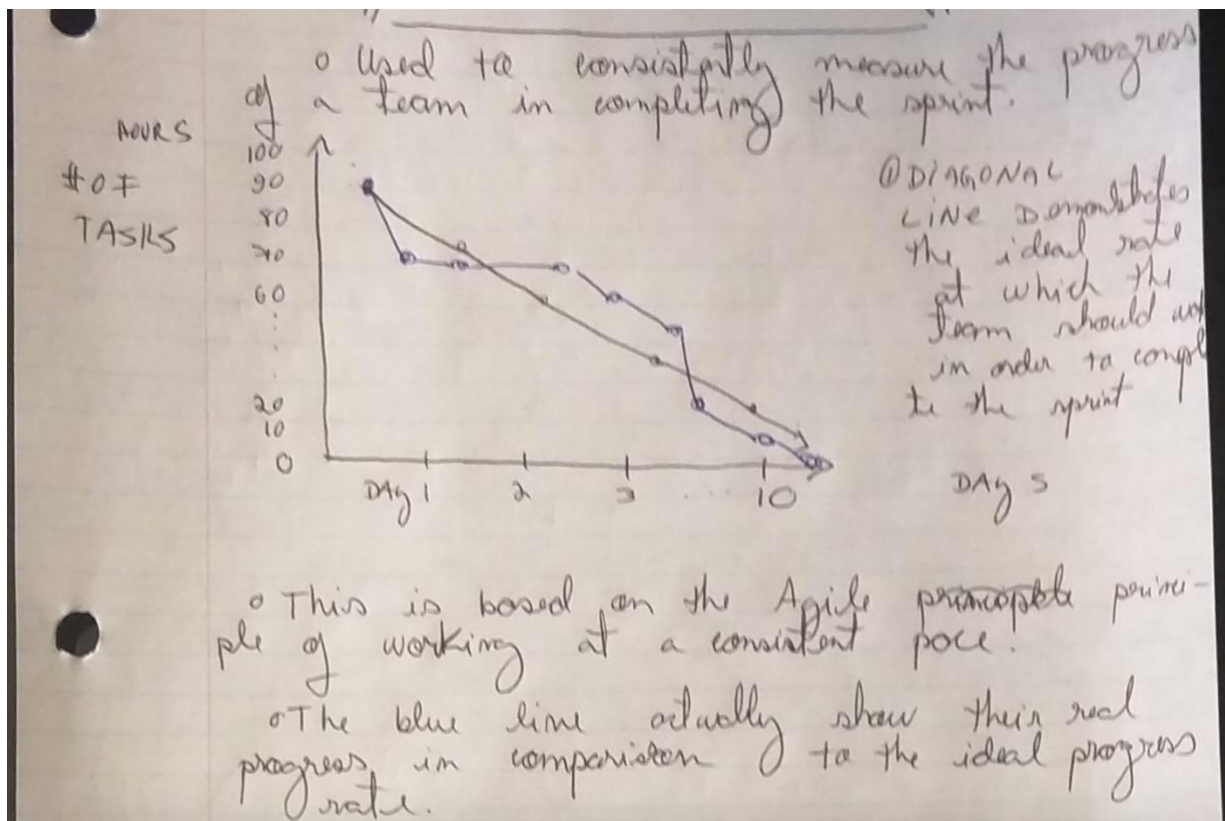 o Used to consistently measure the progress
of a team in completing the sprint.
HOURS
# OF
TASKS
100
90
80
70
60
20
10
0
① DIAGONAL
LINE Demonstrates
the ideal rate
at which the
team should wo
in order to compl
te the sprint
DAy 1 2 3 .. 10 DAy s
o This is based on the Agile princi-
ple of working at a consistent pace.
o The blue line actually show their real
progress in comparision to the ideal progress
rate.